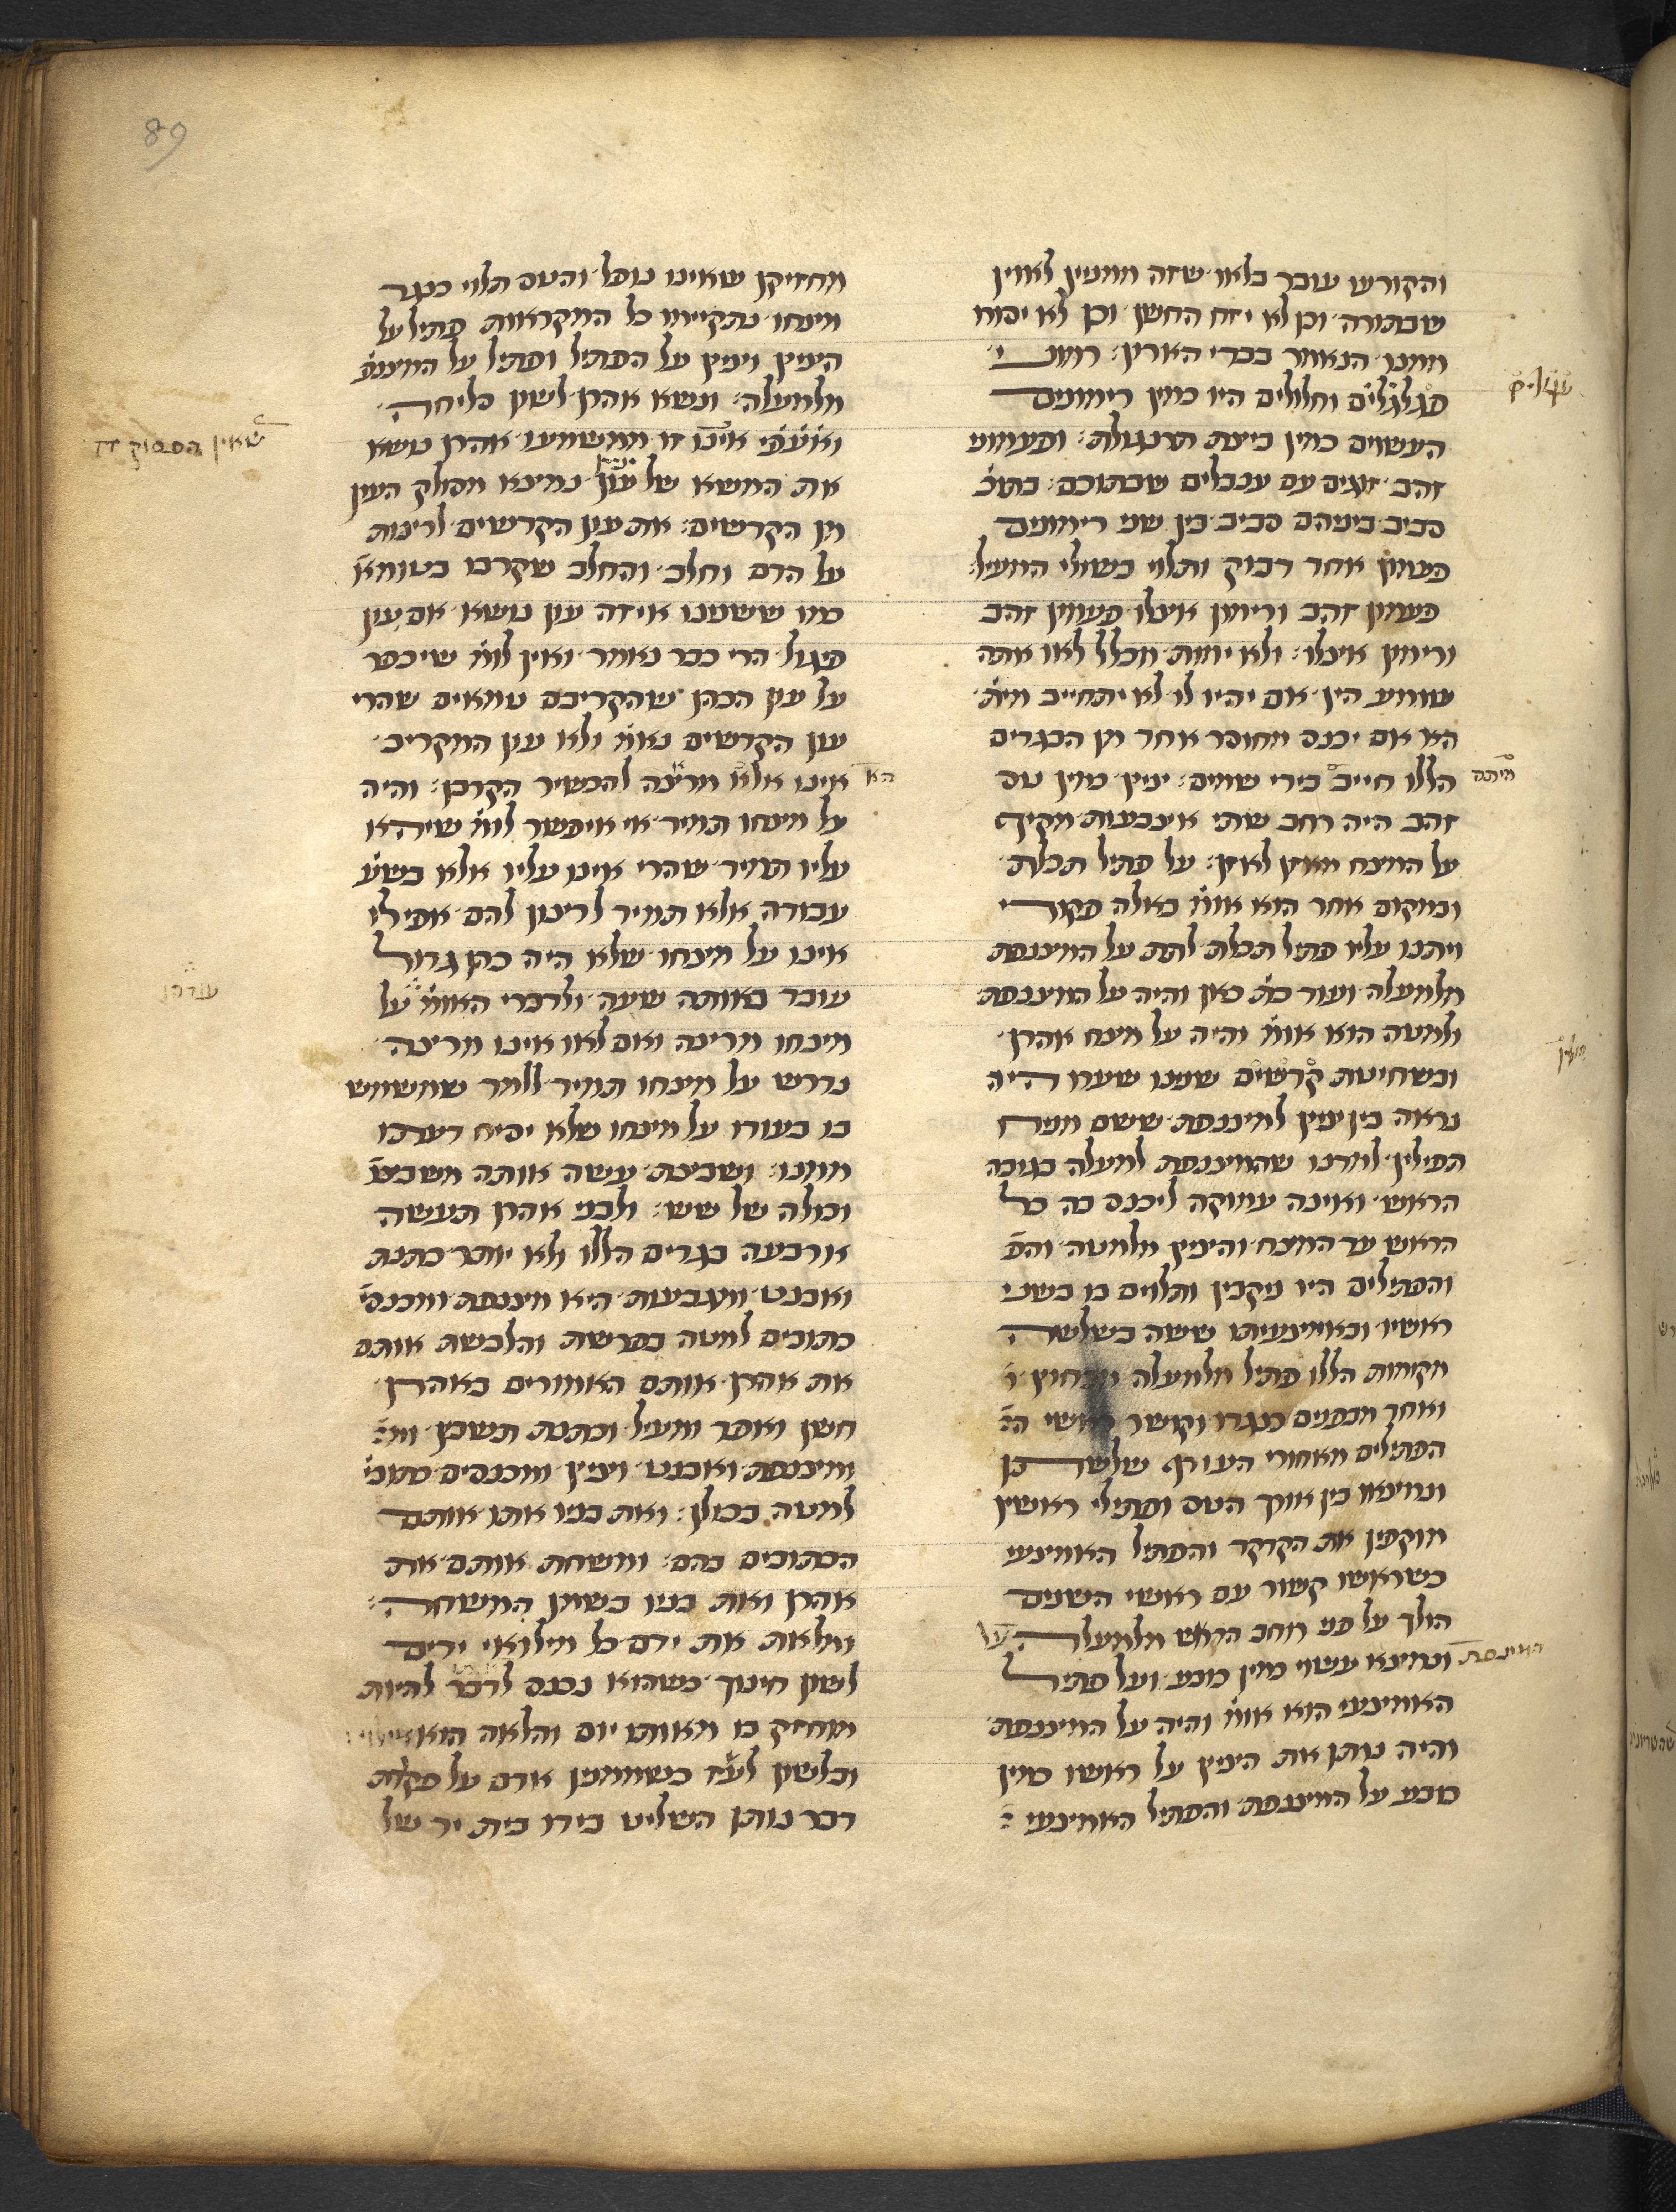 89
והקורעו עובר בלאו שזה ממנין לאוין
שבתורה וכן לא יזח החשן וכן לא יסורו
ממנו הנאמר בבדי הארון׃ רמוני
עגולים וחלולים היו כמין רימונים
העשוים כמין ביצת תרנגולת׃ ופעמוני
זהב זוגים עם ענבלים שבתוכם׃ בתוכ
סביב ביניהם סביב בין שני רימונים
פעמון אחד דבוק ותלוי בשולי המעיל׃
פעמון זהב ורימון אצלו פעמון זהב
ורימון אצלו׃ ולא ימות מכלל לאו אתה
שומע הין אם יהיו לו לא יתחייב מית׳
הא אם יכנס מחוסר אחד מן הבגדים
הללו חייב בידי שמים׃ ציץ כמין טס
מיתה
זהב היה רחב שתי אצבעות מקיף
על המצח מאזן לאזן׃ על פתיל תכלת
ובמקום אחר הוא אומ׳ באלה פקודי
ויתנו עליו פתיל תכלת לתת על המצנפת
מלמעלה ועוד כת׳ כאן והיה על המצנפת
ולמטה הוא אומ׳ והיה על מצח אהרן
ובשחיטת קדשים שנינו שערו היה
נראה בין ציץ למיצנפת ששם מניח
תפילין למדנו שהמיצנפת למעלה בגובה
הראש ואינה עמוקה ליכנס בה כל
הראש עד המצח והציץ מלמטה והפ׳
והפתילים היו ניקבין ותלוים בו בשני
ראשיו ובאמצעיתו ששה בשלשה
מקומות הללו פתיל מלמעלה מבחוץ
ואחד מבפנים כנגדו וקושר ראשי ה׳
הפתילים מאחורי העורף שלשתן
ונמצאו בין אורך הטס ופתילי ראשיו
מוקפין את הקדקד והפתיל האמצעי
שראשו קשור עם ראשי השנים
הולך על פני רוחב הראש מלמעלה
ונמצא עשוי כמין כובע ועל פתיל
האמצעי הוא אומ׳ והיה על המצנפת
והיה נותן את הציץ על ראשו כמין
כובע על המצנפת והפתיל האמצעי
מחזיקן שאינו נופל והטס תלוי כנגד
מצחו נתקיימו כל המקראות פתיל על
הציץ וציץ על הפתיל ופתיל על המצנפ׳
מלמעלה׃ ונשא אהרן לשון סליחה
ואעפ׳ אינו זז ממשמעו אהרן נושא
שאין הפסוק זז
את המשא של עון נמצא מסולק העון
מן הקדשים׃ את עון הקדשים לרצות
על הדם וחלב והחלב שקרבו בטומאה
כמו ששנינו איזה עון נושא אם עון
פיגול הרי כבר נאמר ואין לומ׳ שיכפר
על עון הכהן שהקריבם טמאים שהרי
עון הקדשים נאמ׳ ולא עון המקריב
הא
אינו אלא מרצה להכשיר הקרבן׃ והיה
על מצחו תמיד אי איפשר לומ׳ שיהא
עליו תמיד שהרי אינו עליו אלא בשע׳
עבודה אלא תמיד לרצון להם אפילו
אינו על מצחו שלא היה כהן גדול
עובד באותה שעה ולדברי האומ׳ על
עודהו
מצחו מרצה ואם לאו אינו מרצה
נדרש על מצחו תמיד ללמד שמשמש
בו בעודו על מצחו שלא יסיח דעתו
ממנו׃ ושבצת עשה אותה משבצו׳
וכולה של שש׃ ולבני אהרן תעשה
ארבעה בגדים הללו ולא יותר כתנת
ואבנט ומגבעות היא מצנפת ומכנסי
כתובים למטה בפרשה והלבשת אותם
את אהרן אותם האמורים באהרן
חשן ואפוד ומעיל וכתנת תשבץ
ומיצנפת ואבנט וציץ ומכנסים כתובי׳
למטה בכולן׃ ואת בניו אתו אותם
הכתובים בהם׃ ומשחת אותם את
אהרן ואת בניו בשמן המשחה׃
ומלאת את ידם כל מילואי ידים
לשון חינוך כשהוא נכנס לדבר להיות
מוחזק בו מאותו יום והלאה הוא
ובלשון לע״ז כשממנין אדם על פקודת
דבר נותן השליט בידו בית יד של